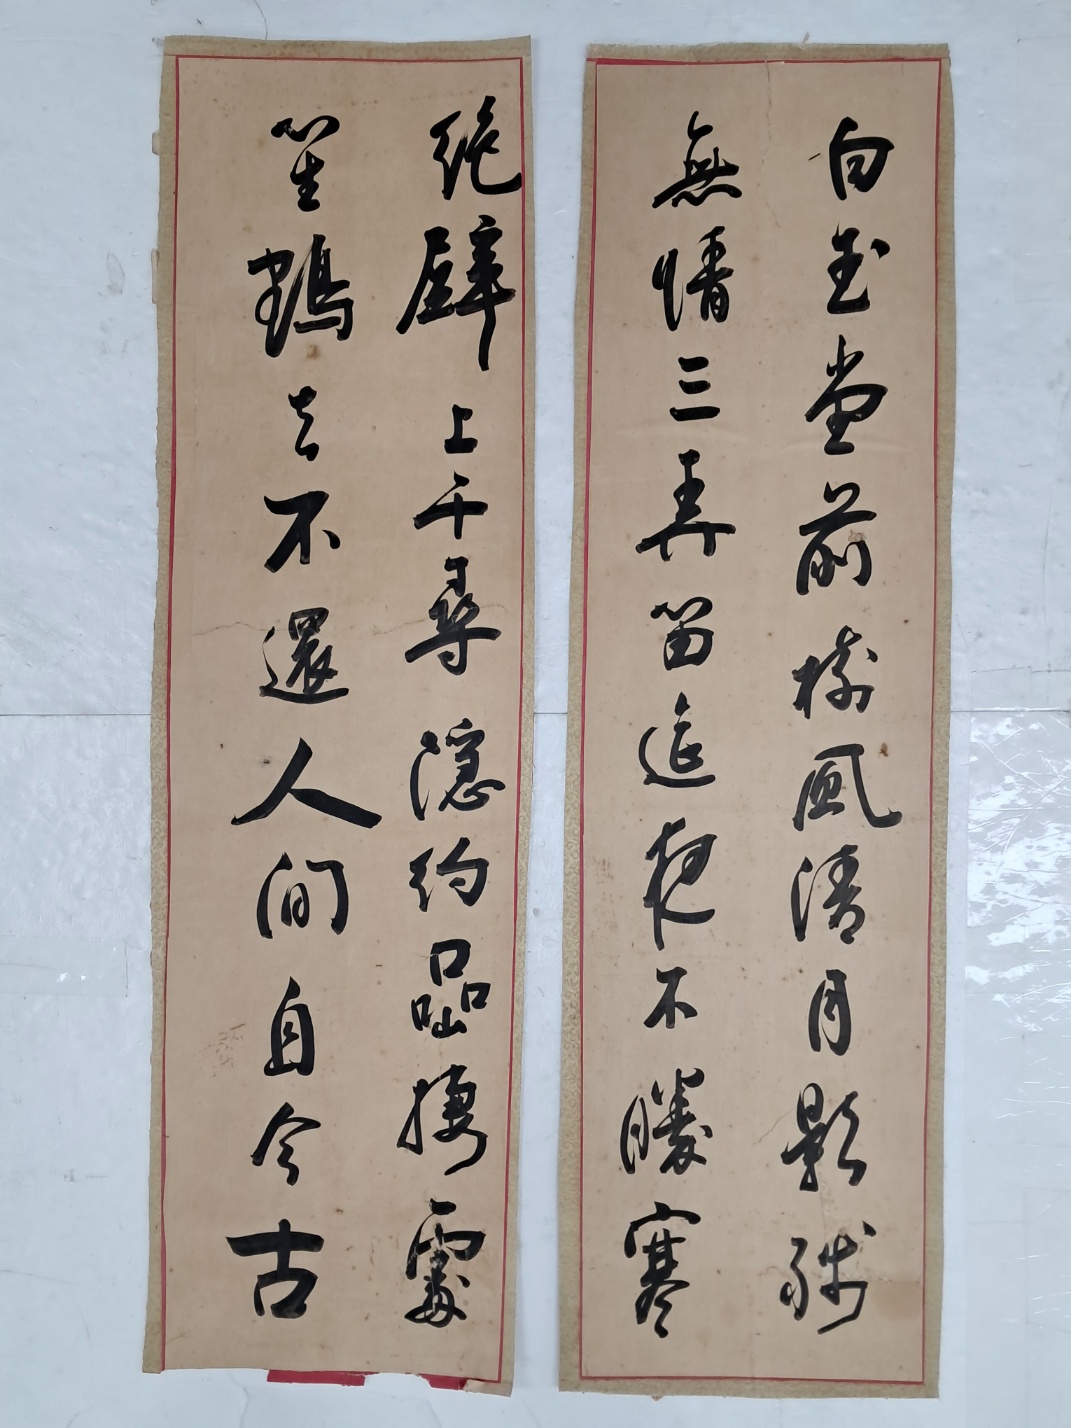 白玉堂前樹風清月影殘
無情三弄笛遙夜不勝寒
絕壁上千尋隱約嵒棲處
笙鶴去不還人間自今古